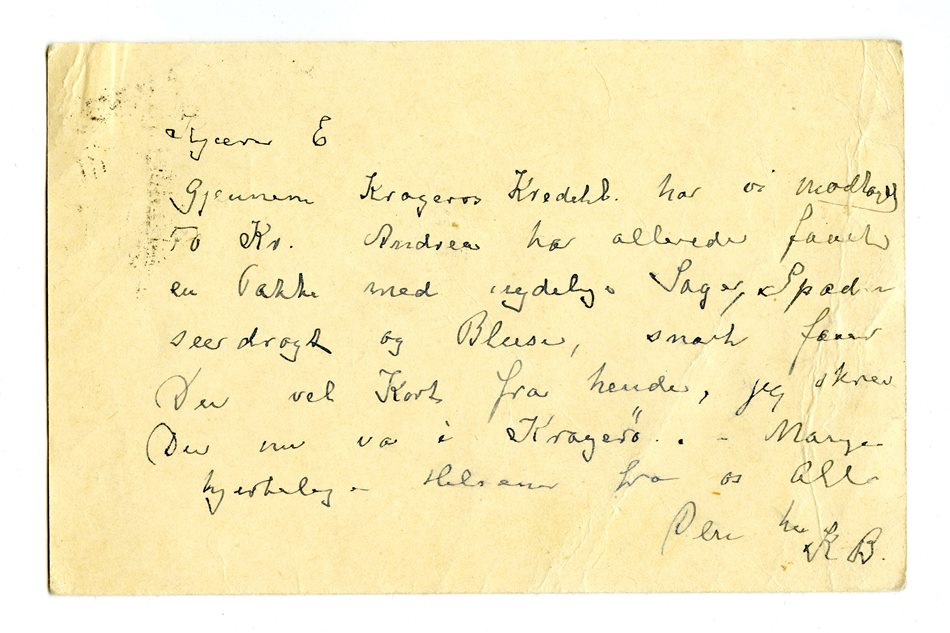 Kjære E
Gjennem Kragerøs Kreditb. har vi modtaget
To Kr. Andrea har allerede faaet
en Pakke med nydelige Sager, Spad
seerdragt og Bluse, snart faaer
De vel Kort fra hende, jeg skrev
De nu va i Kragerö. - Mange
hjertelige Hilsener fra os Alle
Den K B.